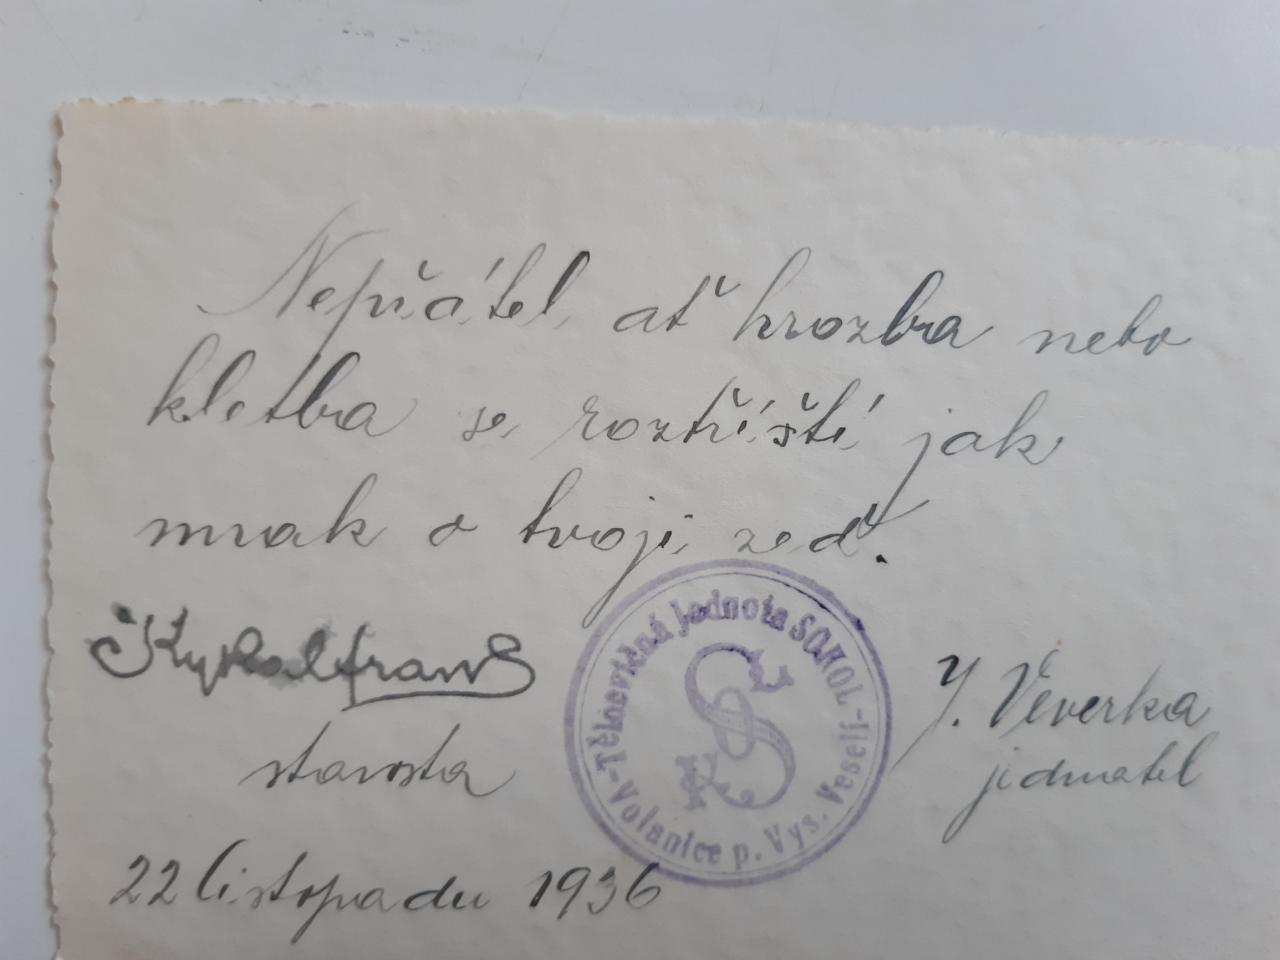 Nepřátel ať hrozba nebo
kletba se roztříští jak
mrak o tvoji zeď.
starosta
J. Veverka
jednatel
Tělocvičná jednota SOKOL
Volanice p. Vys. Veselí
22 listopadu 1936